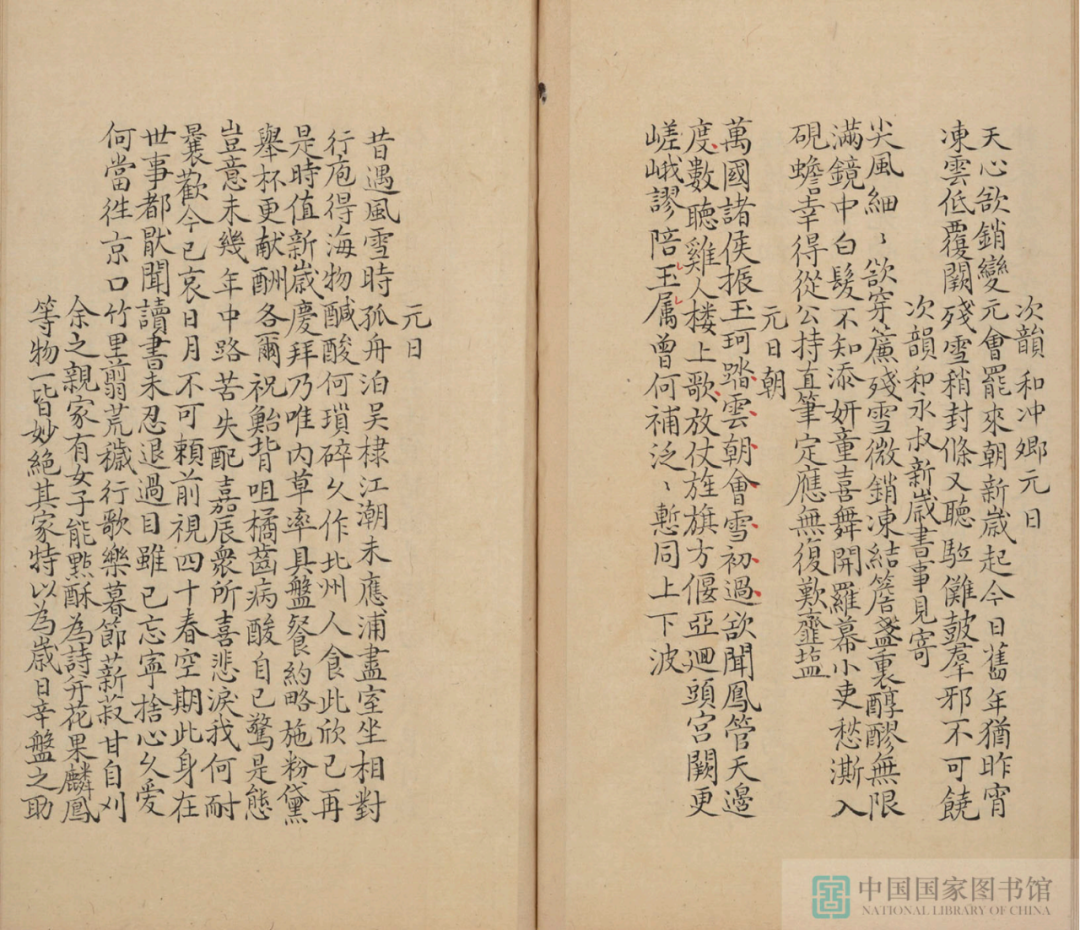 次韻和冲卿元日
天心欲銷變元會罷來朝新歲起今日舊年猶昨宵
凍雲低覆闕殘雪稍封條又聽駈儺鼓羣邪不可饒
次韻和永叔新歲書事見寄
尖風細〻欲穿簾殘雪微銷凍結簷盞裏醇醪無限
滿鏡中白髮不知添妍童喜舞開羅幕小吏愁澌入
硯蟾幸得從公持直筆定應無復歎虀塩
元日朝
萬國諸侯振玉珂踏雲朝會雪初過欲聞鳳管天邊
度數聽雞人楼上歌放仗旌旗方偃亞迴頭宮闕更
嵯峨謬陪玉属曾何補泛〻慙同上下波
元日
昔遇風雪時孤舟泊吴棣江潮未應浦盡室坐相對
行庖得海物鹹酸何瑣碎久作北州人食此欣已再
是時值新歲慶拜乃唯内草率具盤餐約略施粉黛
舉杯更献酬各爾祝鮐背咀橘齒病酸自已驚是態
豈意未幾年中路苦失配嘉辰衆所喜悲淚我何耐
曩歡今已哀日月不可頼前視四十春空期此身在
世事都厭聞讀書未忍退過目雖已忘寧捨心久爱
何當徃京口竹里翦荒穢行歌樂暮節薪菽甘自刈
余之親家有女子能點酥為詩并花果麟鳳
等物一皆妙絶其家特以為歲日辛盤之助
中国国家图书馆
NATIONAL LIBRARY OF CHINA